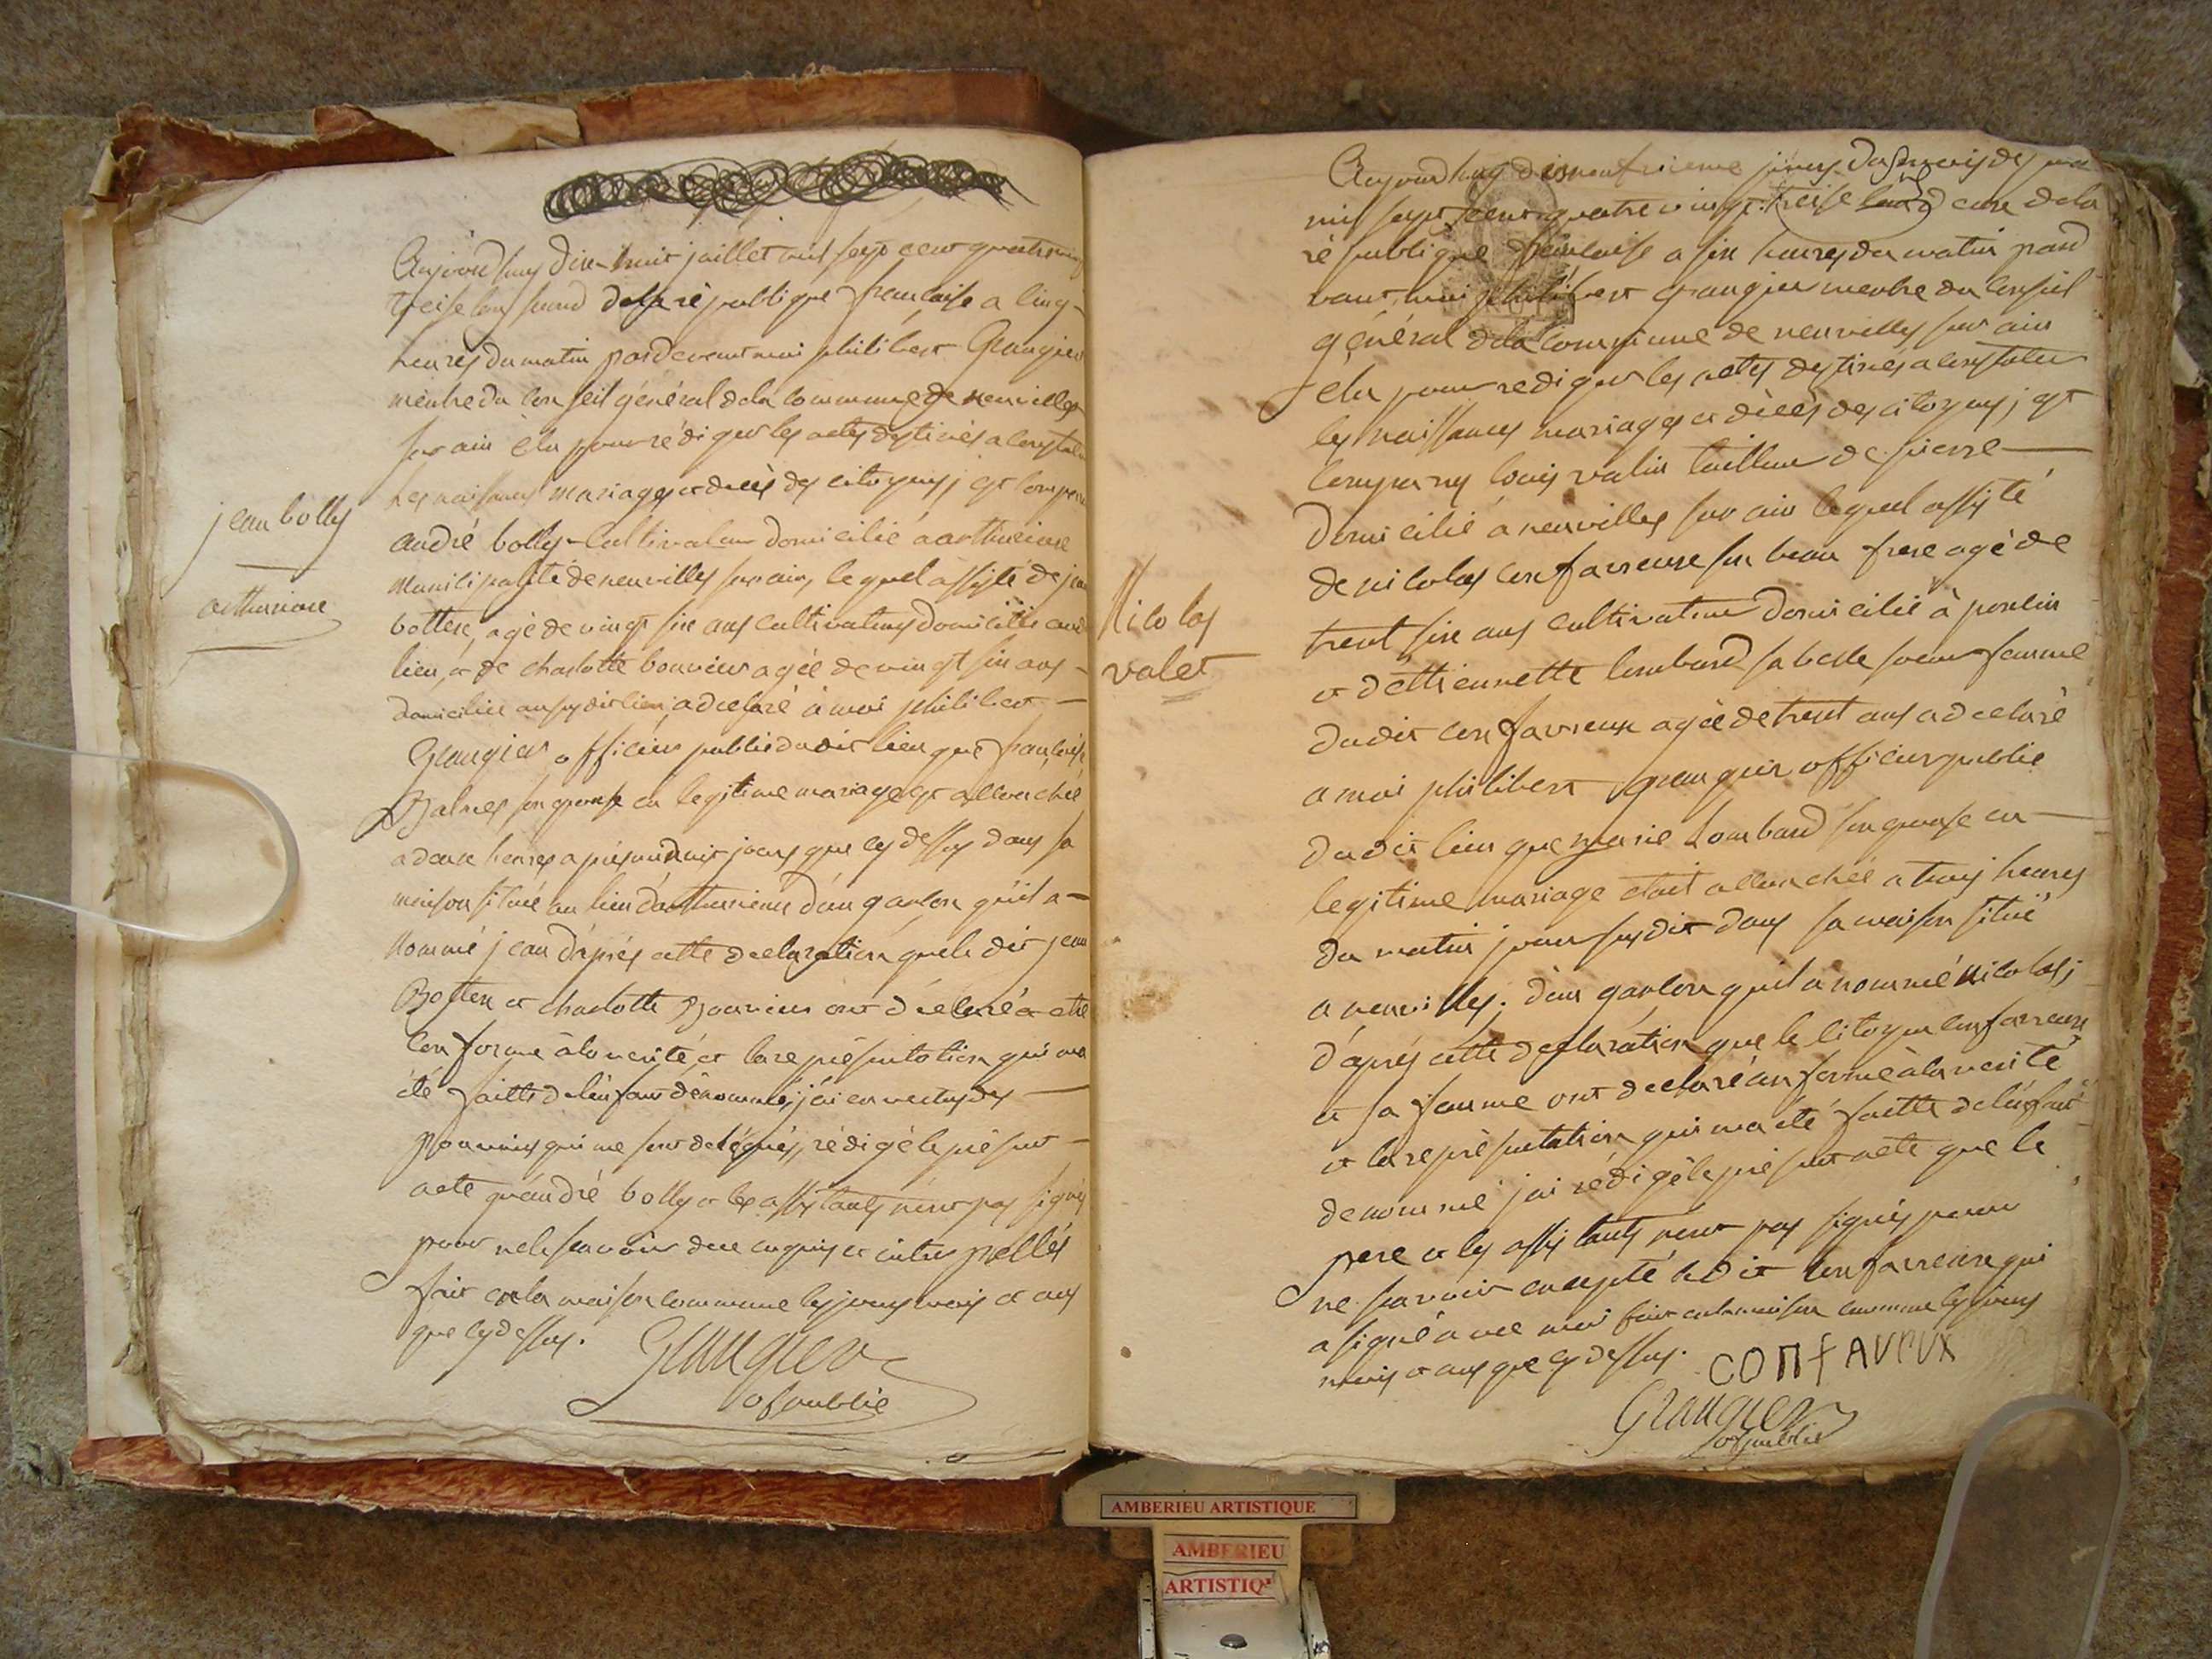 Aujourdhuy dix-huit juillet mil sept cent quatre vingt
treise lan second dela république francaise a cinq
heures du matin pardevant moi philibert Grangier
menbre du conseil général dela commune de neuvilles
sur ain élu pour rédiger les actes destinés a constater
les naissances mariages et decès des citoyens, est comparu
andré bolly cultivateur domicilié a authunieure
jean bolly
authuniaxe
municipalité de neuvilles sur ain, lequel assisté de jean
bottex, agé de vingt six ans cultivateurs domicilié audit
lieu, et de charlotte bouvier agée de vingt six ans
domiciliée au susdit lieu, a declaré à moi philibert
Grangier officier public dudit lieu que francoise
Balmes son epouse en legitime mariage est allouchée
a deux heures apres minuit jours que cy dessus dans sa
maison située au lieu dauthunieux d'un garlon qu'il a
nommé jean d'après cette declaration que le dit jean
Bottex et charlotte Bouvier ont déclaré etre
conforme à la verité et la représentation qui ma
été faitte de l'enfant dénommé, j'ai en vertu des
pouvoirs qui me sont delégués, rédigé le présent
acte qu'andré bolly et les assistants n'ont pas signés
pour ne le scavoir de ce enquis et interpellés
fait en la maison commune les jours mois et ans
que cy dessus. Grangier
of public
Aujourdhuy dixneufvieme jours du mois de
mil sept cent quatre vingt treise lan deux dela
république francaise a six heures du matin pard
vant moi philibert Grangier menbre du conseil
général dela commune de neuvilles sur ain
élu pour rediger les actes destinés a constater
les naissances mariages et décès des citoyens, est
comparus louis valin tailleur de pierre
domicilié à neuvilles sur ain lequel assisté
de nicolas confavreux son beau frere agé de
Nicolas
valet
trent six ans cultivateur domicilié à poncin
et d'ettiennette lombard sa belle soeur femme
dudit confavreux agée de trent ans a declaré
a moi philibert grangier officier public
dudit lieu que marie Lombard son epouse en
legitime mariage etait allouchée a trois heures
du matin jour susdit dans sa maison située
a neuvilles. d'un garlon qu'il a nommé nicolas,
d'après cette declaration que le citoyen confavreux
et sa femme ont declaré conforme à la verité
et la représentation qui ma été faitte de l'enfant
denommé j'ai rédigé le présent acte que le
pere et les assistants nont pas signés pour
ne scavoir excepté ledit confavreux qui
a signé avec moi fait en la maison commune les jours
mois et ans que cy dessus. confavrux
Grangier
of public
AMBERIEU ARTISTIQUE
AMBERIEU
ARTISTIQ